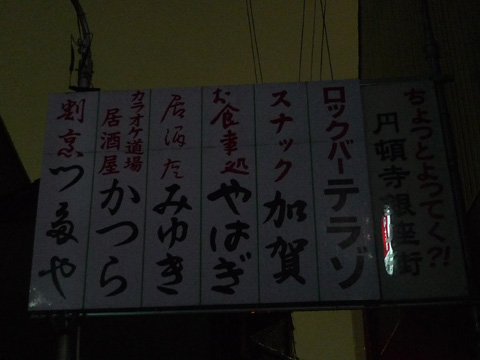 ちょっとよってく?!
円頓寺銀座街
ロックバーテラゾ
スナック 加賀
お食事処 やはぎ
居酒屋 みゆき
カラオケ道場
居酒屋 かつら
割烹 つたや